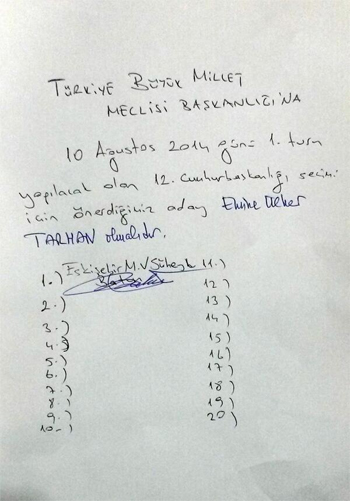 TÜRKİYE BÜYÜK MİLLET
MECLİSİ BAŞKANLIĞI'NA
10 Ağustos 2014 günü 1. turu
yapılacak olan 12. Cumhurbaşkanlığı seçimi
için önerdiğimiz aday Emine Ülker
TARHAN olmalıdır.
1.) Eskişehir M.V Süheyl 11.)
Batum 12)
2.) 13)
3.) 14)
4.) 15)
5.) 16)
6.) 17)
7.) 18)
8.) 19)
9.) 20)
10-)